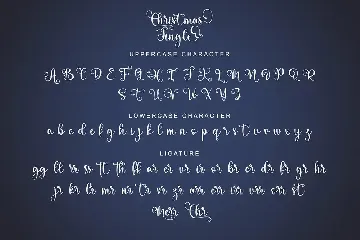 Christmas
Jingle
UPPERCASE CHARACTER
A B C D E F G H I J K L M N O P Q R
S T U V W X Y Z
LOWERCASE CHARACTER
a b c d e f g h i j k l m n o p q r s t u v w x y z
LIGATURE
gg ll ss tt th ff ar er vr ir or br cr dr fr gr hr
jr kr lr mr nr
st
Merr Chr